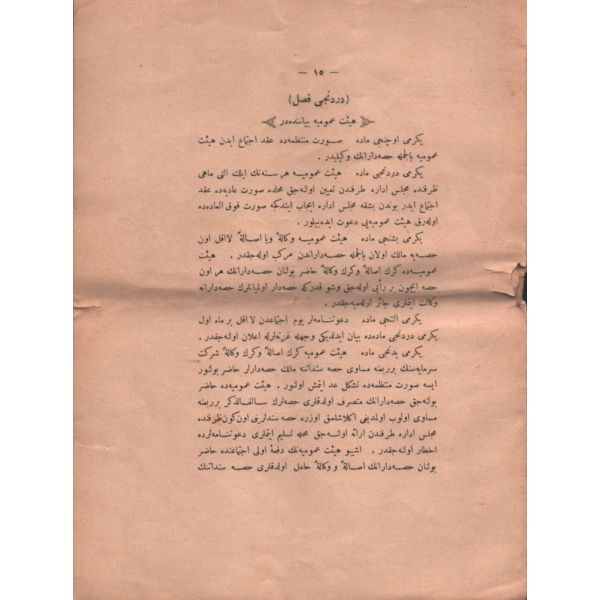 — ١٥ —
{دردنجی فصل}
هیئت عمومیه بیاننده‌در
یكرمی اوچنجی ماده صورت منتظمه‌ده عقد اجتماع ایدن هیئت
عمومیه بالجمله حصه‌دارانك وكیلیدر .
یكرمی دردنجی ماده هیئت عمومیه هر سنه‌نك ایلك التی ماهی
ظرفنده مجلس اداره طرفندن تعیین اولنه‌جق محلده صورت عادیه‌ده عقد
اجتماع ایدر بوندن بشقه مجلس اداره ایجاب ایتدكجه صورت فوق العاده‌ده
اوله‌رق هیئت عمومیه‌یی دعوت ایده‌بیلور .
یكرمی بشنجی ماده هیئت عمومیه وكالةً ویا اصالةً لااقل اون
حصه‌یه مالك اولان بالجمله حصه‌داراندن مركب اوله‌جقدر . هیئت
عمومیه‌ده كرك اصالةً وكرك وكالةً حاضر بولنان حصه‌دارانك هر اون
حصه ایچون بر رأیی اوله‌جق وشو قدركه حصه‌دار اولمیانلرك حصه‌دارانه
وكالت ایتملری جائز اوله‌میه‌جقدر .
یكرمی التنجی ماده دعوتنامه‌لر یوم اجتماعدن لااقل بر ماه اول
یكرمی دردنجی ماده‌ده بیان ایدلدیكی وجهله غزته‌لرله اعلان اوله‌جقدر .
یكرمی یدنجی ماده هیئت عمومیه كرك اصالةً وكرك وكالةً شركت
سرمایه‌سنك بر ربعنه مساوی حصه سنداتنه مالك حصه‌دارلر حاضر بولنور
ایسه صورت منتظمه‌ده تشكل عد ایتمش اولنور . هیئت عمومیه‌ده حاضر
بولنه‌جق حصه‌دارانك متصرف اولدقلری حصه‌لرك سالف‌الذكر بر ربعنه
مساوی اولوب اولمدیغی اكلاشلمق اوزره حصه سندلرینی اون كون ظرفنده
مجلس اداره طرفندن ارائه اولنه‌جق محله تسلیم ایتملری دعوتنامه‌لرده
اخطار اولنه‌جقدر . اشبو هیئت عمومیه‌نك دفعهٔ اولی اجتماعنده حاضر
بولنان حصه‌دارانك اصالةً و وكالةً حامل اولدقلری حصه سنداتنك